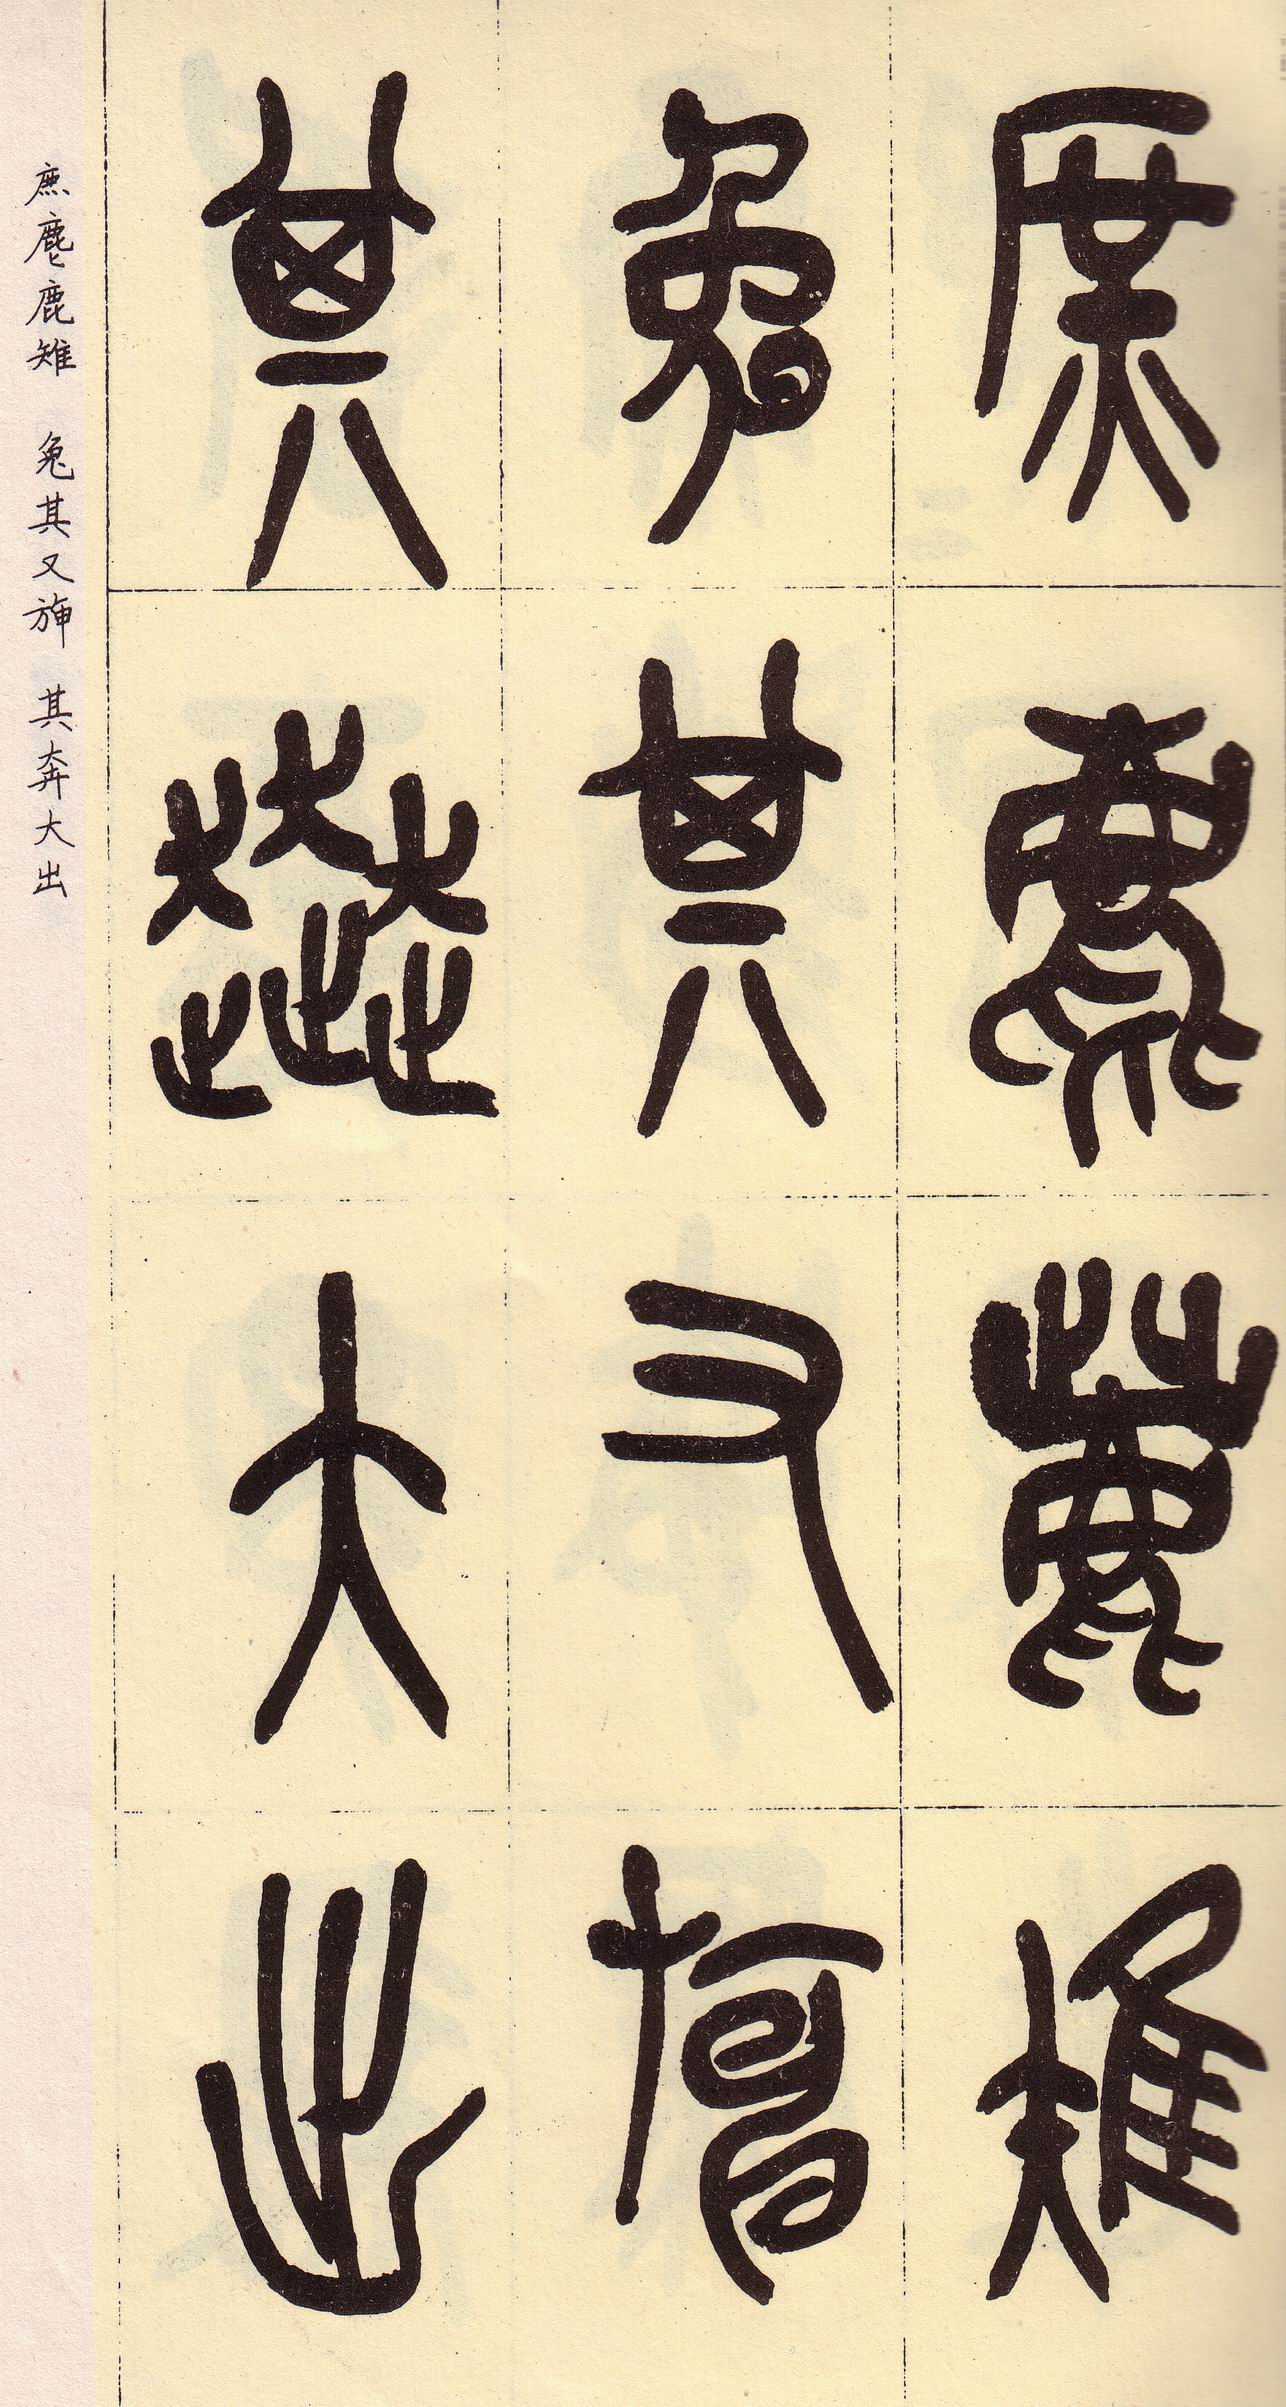 庶麀鹿雉
兔其又
其奔大出
庶麀鹿雉 兔其又 其奔大出